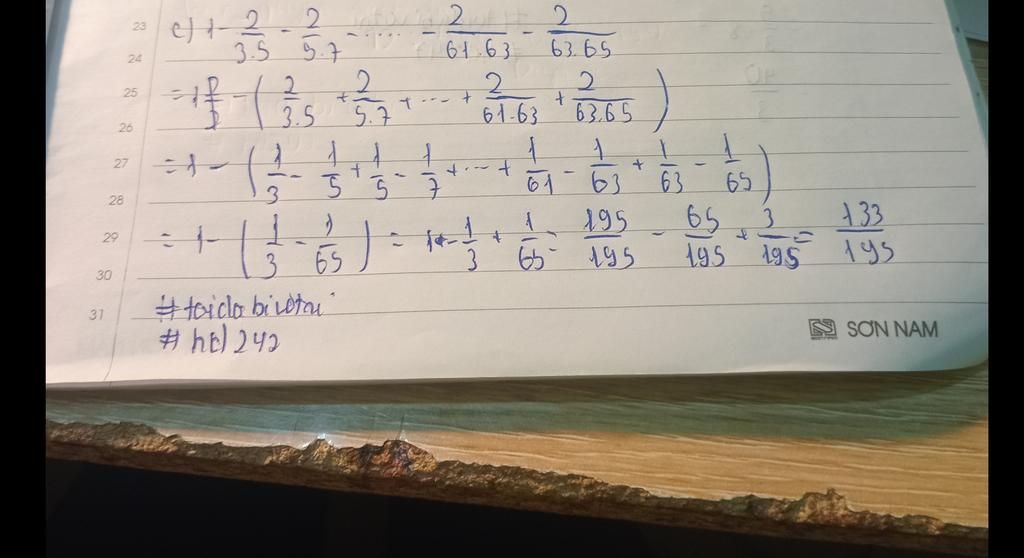 23 c) 1 - 2/3.5 - 2/5.7 - ..... - 2/61.63 - 2/63.65
24
25 = 1 - ( 2/3.5 + 2/5.7 + ... + 2/61.63 + 2/63.65 )
26
27 = 1 - ( 1/3 - 1/5 + 1/5 - 1/7 + ... + 1/61 - 1/63 + 1/63 - 1/65 )
28
29 = 1 - ( 1/3 - 1/65 ) = 1 - 1/3 + 1/65 = 195/195 - 65/195 + 3/195 = 133/195
30
31 #toidabivotri
#htl242
SƠN NAM